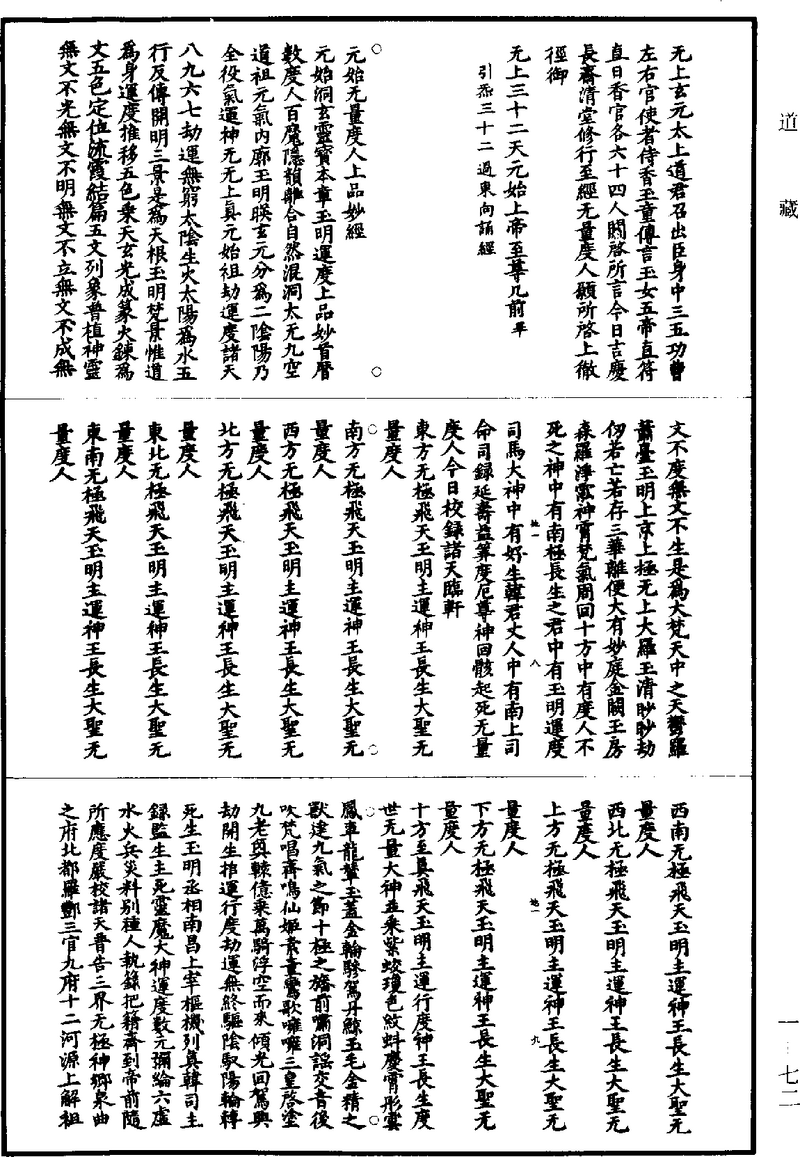 道藏
无上玄元太上道君召出臣身中三五功曹
左右官使者侍香玉童傳言玉女五帝直符
直日香官各六十四人關啓所言今日吉慶
長齋清堂修行至經无量度人願所啓上徹
徑御
无上三十二天元始上帝至尊几前畢
引炁三十二過東向誦經
元始无量度人上品妙經
元始洞玄靈寶本章玉明運度上品妙首曆
數度人百魔隱韻離合自然混洞太无九空
道祖元氣內廓玉明暎玄元分爲二陰陽乃
全役氣運神无无上真元始祖劫運度諸天
八九六七劫運無窮太陰生火太陽爲水五
行反傳開明三景是爲天根玉明梵景惟道
爲身運度推移五色乘天玄光成篆火鍊爲
文五色定位流霞結篇五文列象普植神靈
無文不光無文不明無文不立無文不成無
文不度無文不生是爲大梵天中之天鬱羅
蕭臺玉明上京上極无上大羅玉清眇眇劫
仞若亡若存三華離便大有妙庭金闕玉房
森羅淨霐神霄梵氣周回十方中有度人不
死之神中有南極長生之君中有玉明運度
司馬大神中有好生韓君丈人中有南上司
命司録延壽益筭度厄尊神回骸起死无量
度人今日校録諸天臨軒
東方无極飛天玉明主運神王長生大聖无
量度人
南方无極飛天玉明主運神王長生大聖无
量度人
西方无極飛天玉明主運神王長生大聖无
量度人
北方无極飛天玉明主運神王長生大聖无
量度人
東北无極飛天玉明主運神王長生大聖无
量度人
東南无極飛天玉明主運神王長生大聖无
量度人
西南无極飛天玉明主運神王長生大聖无
量度人
西北无極飛天玉明主運神王長生大聖无
量度人
上方无極飛天玉明主運神王長生大聖无
量度人
下方无極飛天玉明主運神王長生大聖无
量度人
十方至真飛天玉明主運行度神王長生度
世无量大神並乘紫蛟瓊色紋虯慶霄彤雲
鳳車龍輦玉蓋金輪驂駕丹鯨玉毛金精之
獸建九氣之節十極之旛前嘯洞謡交音後
吹梵唱齊鳴仙姬素童鸞歌嗈囉三皇啓塗
九老與轅億乘萬騎浮空而來傾光回駕興
劫開生揞運行度劫運無終驅陰馭陽輪轉
死生玉明丞相南昌上宰樞機列真韓司主
録監生主死靈魔大神運度數元彌綸六虛
水火兵災料別種人執錄把籍齊到帝前隨
所應度嚴校諸天普告三界无極神鄉泉曲
之府北都羅酆三官九府十二河源上解祖
一·七二